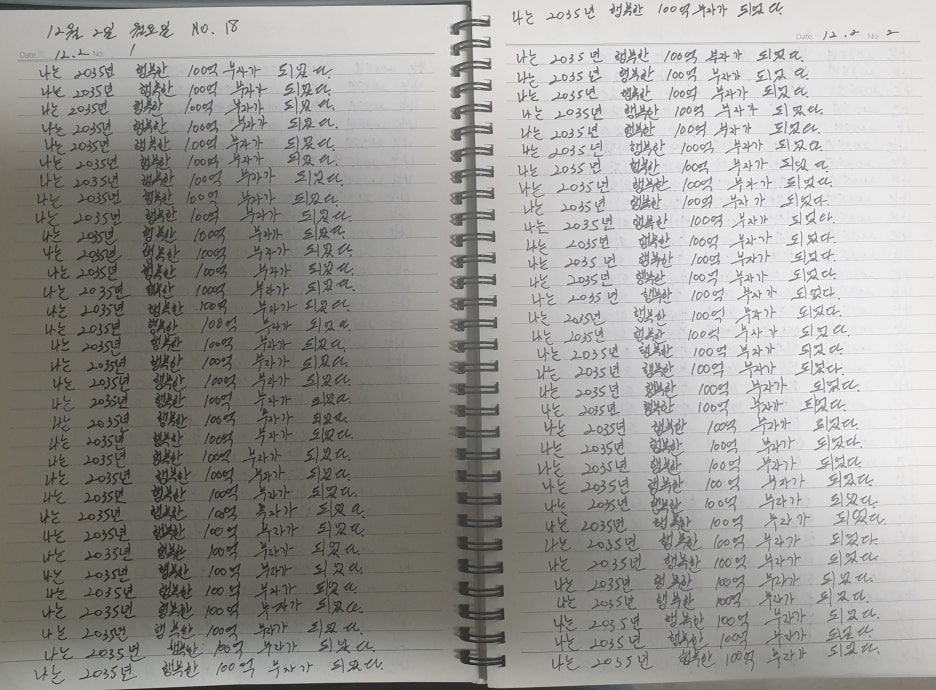 12월 2일 월요일 No. 18
Date. 12.2 No. 1
나는 2035년 행복한 100억 부자가 되었다.
나는 2035년 행복한 100억 부자가 되었다.
나는 2035년 행복한 100억 부자가 되었다.
나는 2035년 행복한 100억 부자가 되었다.
나는 2035년 행복한 100억 부자가 되었다.
나는 2035년 행복한 100억 부자가 되었다.
나는 2035년 행복한 100억 부자가 되었다.
나는 2035년 행복한 100억 부자가 되었다.
나는 2035년 행복한 100억 부자가 되었다.
나는 2035년 행복한 100억 부자가 되었다.
나는 2035년 행복한 100억 부자가 되었다.
나는 2035년 행복한 100억 부자가 되었다.
나는 2035년 행복한 100억 부자가 되었다.
나는 2035년 행복한 100억 부자가 되었다.
나는 2035년 행복한 100억 부자가 되었다.
나는 2035년 행복한 100억 부자가 되었다.
나는 2035년 행복한 100억 부자가 되었다.
나는 2035년 행복한 100억 부자가 되었다.
나는 2035년 행복한 100억 부자가 되었다.
나는 2035년 행복한 100억 부자가 되었다.
나는 2035년 행복한 100억 부자가 되었다.
나는 2035년 행복한 100억 부자가 되었다.
나는 2035년 행복한 100억 부자가 되었다.
나는 2035년 행복한 100억 부자가 되었다.
나는 2035년 행복한 100억 부자가 되었다.
나는 2035년 행복한 100억 부자가 되었다.
나는 2035년 행복한 100억 부자가 되었다.
나는 2035년 행복한 100억 부자가 되었다.
나는 2035년 행복한 100억 부자가 되었다.
나는 2035년 행복한 100억 부자가 되었다.
나는 2035년 행복한 100억 부자가 되었다.
나는 2035년 행복한 100억 부자가 되었다.
나는 2035년 행복한 100억 부자가 되었다.
나는 2035년 행복한 100억 부자가 되었다.
Date. 12.2 No. 2
나는 2035년 행복한 100억 부자가 되었다.
나는 2035년 행복한 100억 부자가 되었다.
나는 2035년 행복한 100억 부자가 되었다.
나는 2035년 행복한 100억 부자가 되었다.
나는 2035년 행복한 100억 부자가 되었다.
나는 2035년 행복한 100억 부자가 되었다.
나는 2035년 행복한 100억 부자가 되었다.
나는 2035년 행복한 100억 부자가 되었다.
나는 2035년 행복한 100억 부자가 되었다.
나는 2035년 행복한 100억 부자가 되었다.
나는 2035년 행복한 100억 부자가 되었다.
나는 2035년 행복한 100억 부자가 되었다.
나는 2035년 행복한 100억 부자가 되었다.
나는 2035년 행복한 100억 부자가 되었다.
나는 2035년 행복한 100억 부자가 되었다.
나는 2035년 행복한 100억 부자가 되었다.
나는 2035년 행복한 100억 부자가 되었다.
나는 2035년 행복한 100억 부자가 되었다.
나는 2035년 행복한 100억 부자가 되었다.
나는 2035년 행복한 100억 부자가 되었다.
나는 2035년 행복한 100억 부자가 되었다.
나는 2035년 행복한 100억 부자가 되었다.
나는 2035년 행복한 100억 부자가 되었다.
나는 2035년 행복한 100억 부자가 되었다.
나는 2035년 행복한 100억 부자가 되었다.
나는 2035년 행복한 100억 부자가 되었다.
나는 2035년 행복한 100억 부자가 되었다.
나는 2035년 행복한 100억 부자가 되었다.
나는 2035년 행복한 100억 부자가 되었다.
나는 2035년 행복한 100억 부자가 되었다.
나는 2035년 행복한 100억 부자가 되었다.
나는 2035년 행복한 100억 부자가 되었다.
나는 2035년 행복한 100억 부자가 되었다.